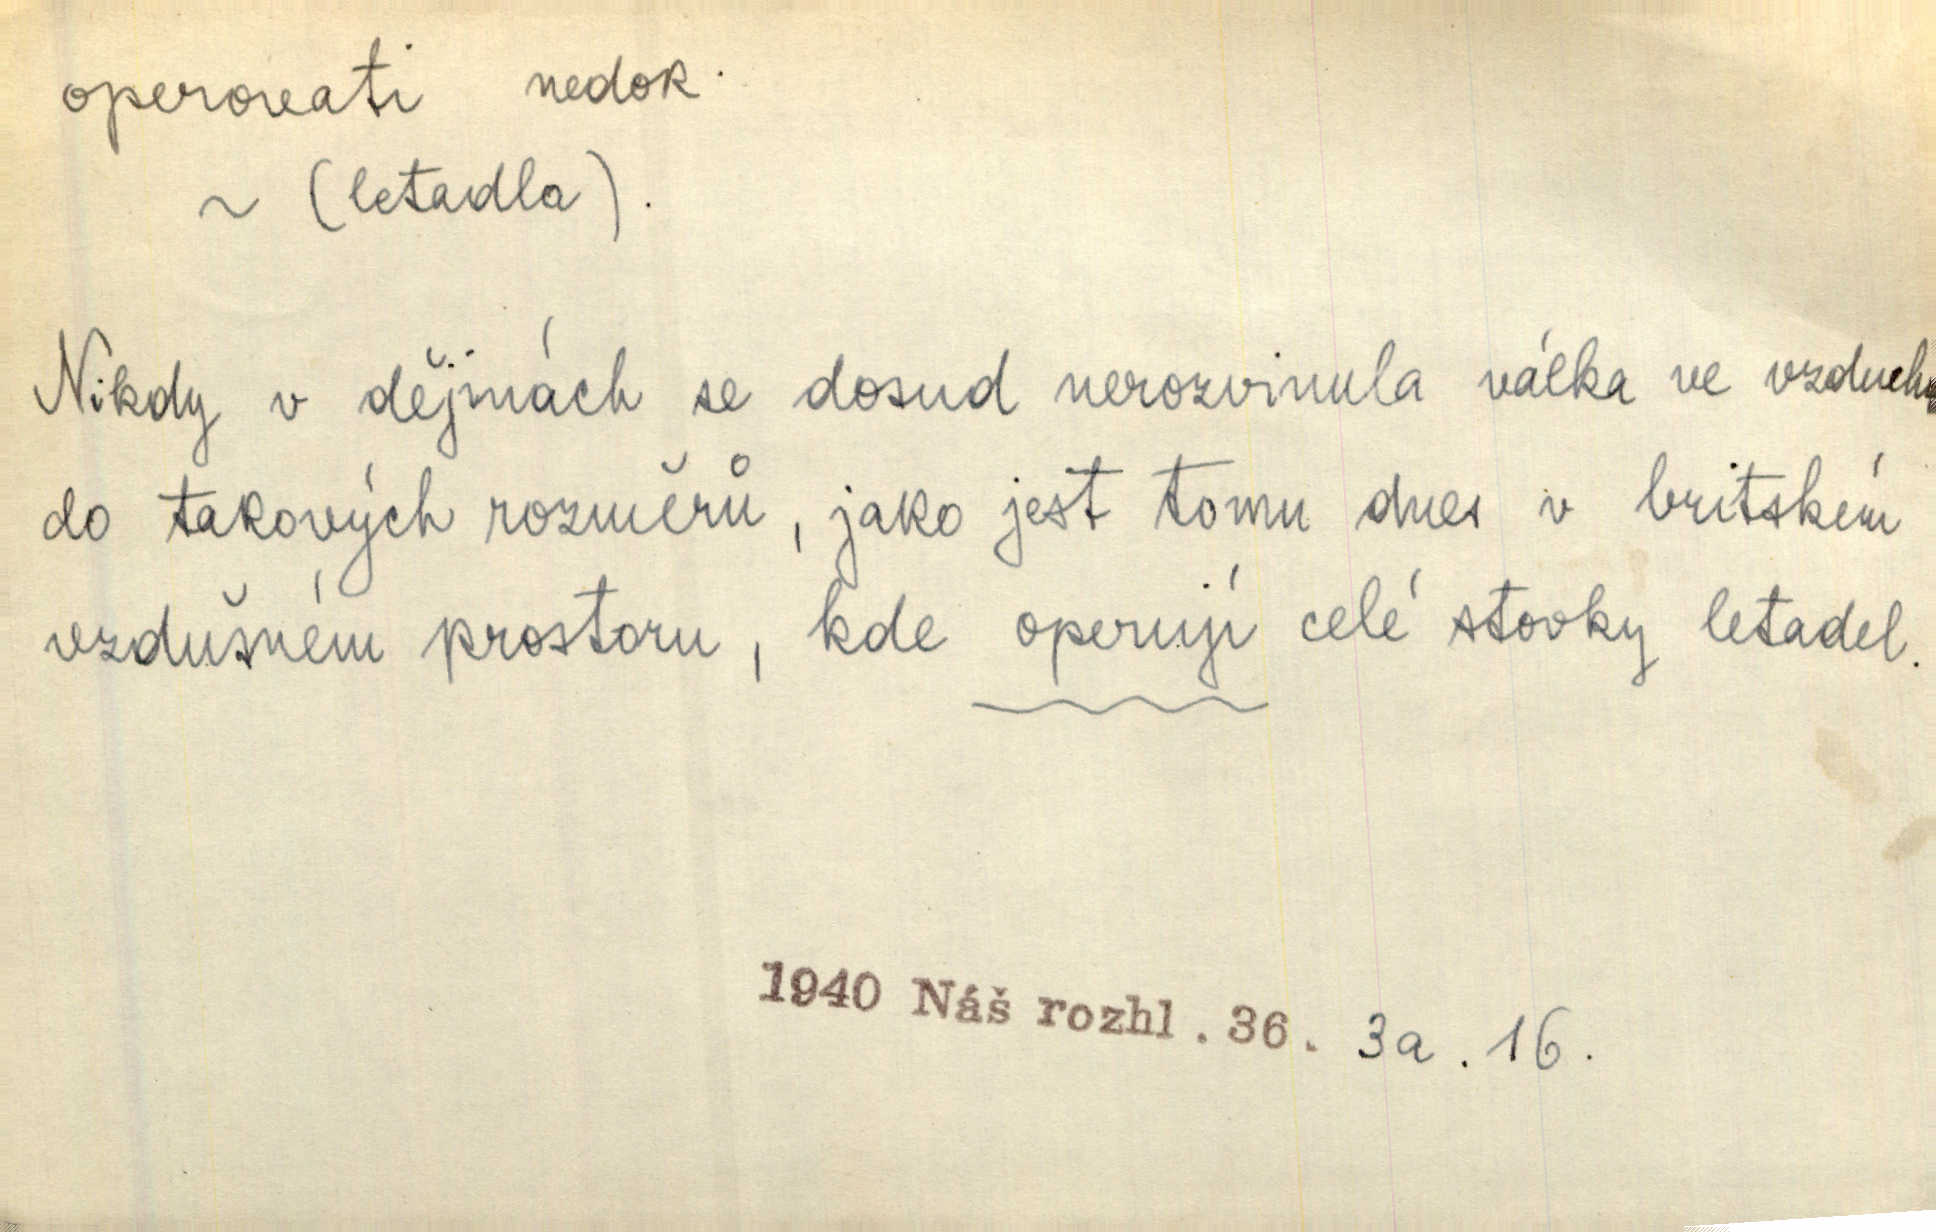 operovati nedok.
~ (letadla).
Nikdy v dějinách se dosud nerozvinula válka ve vzduchu
do takových rozměrů, jako jest tomu dnes v britském
vzdušném prostoru, kde operují celé stovky letadel.
1940 Náš rozhl. 36. 3a. 16.